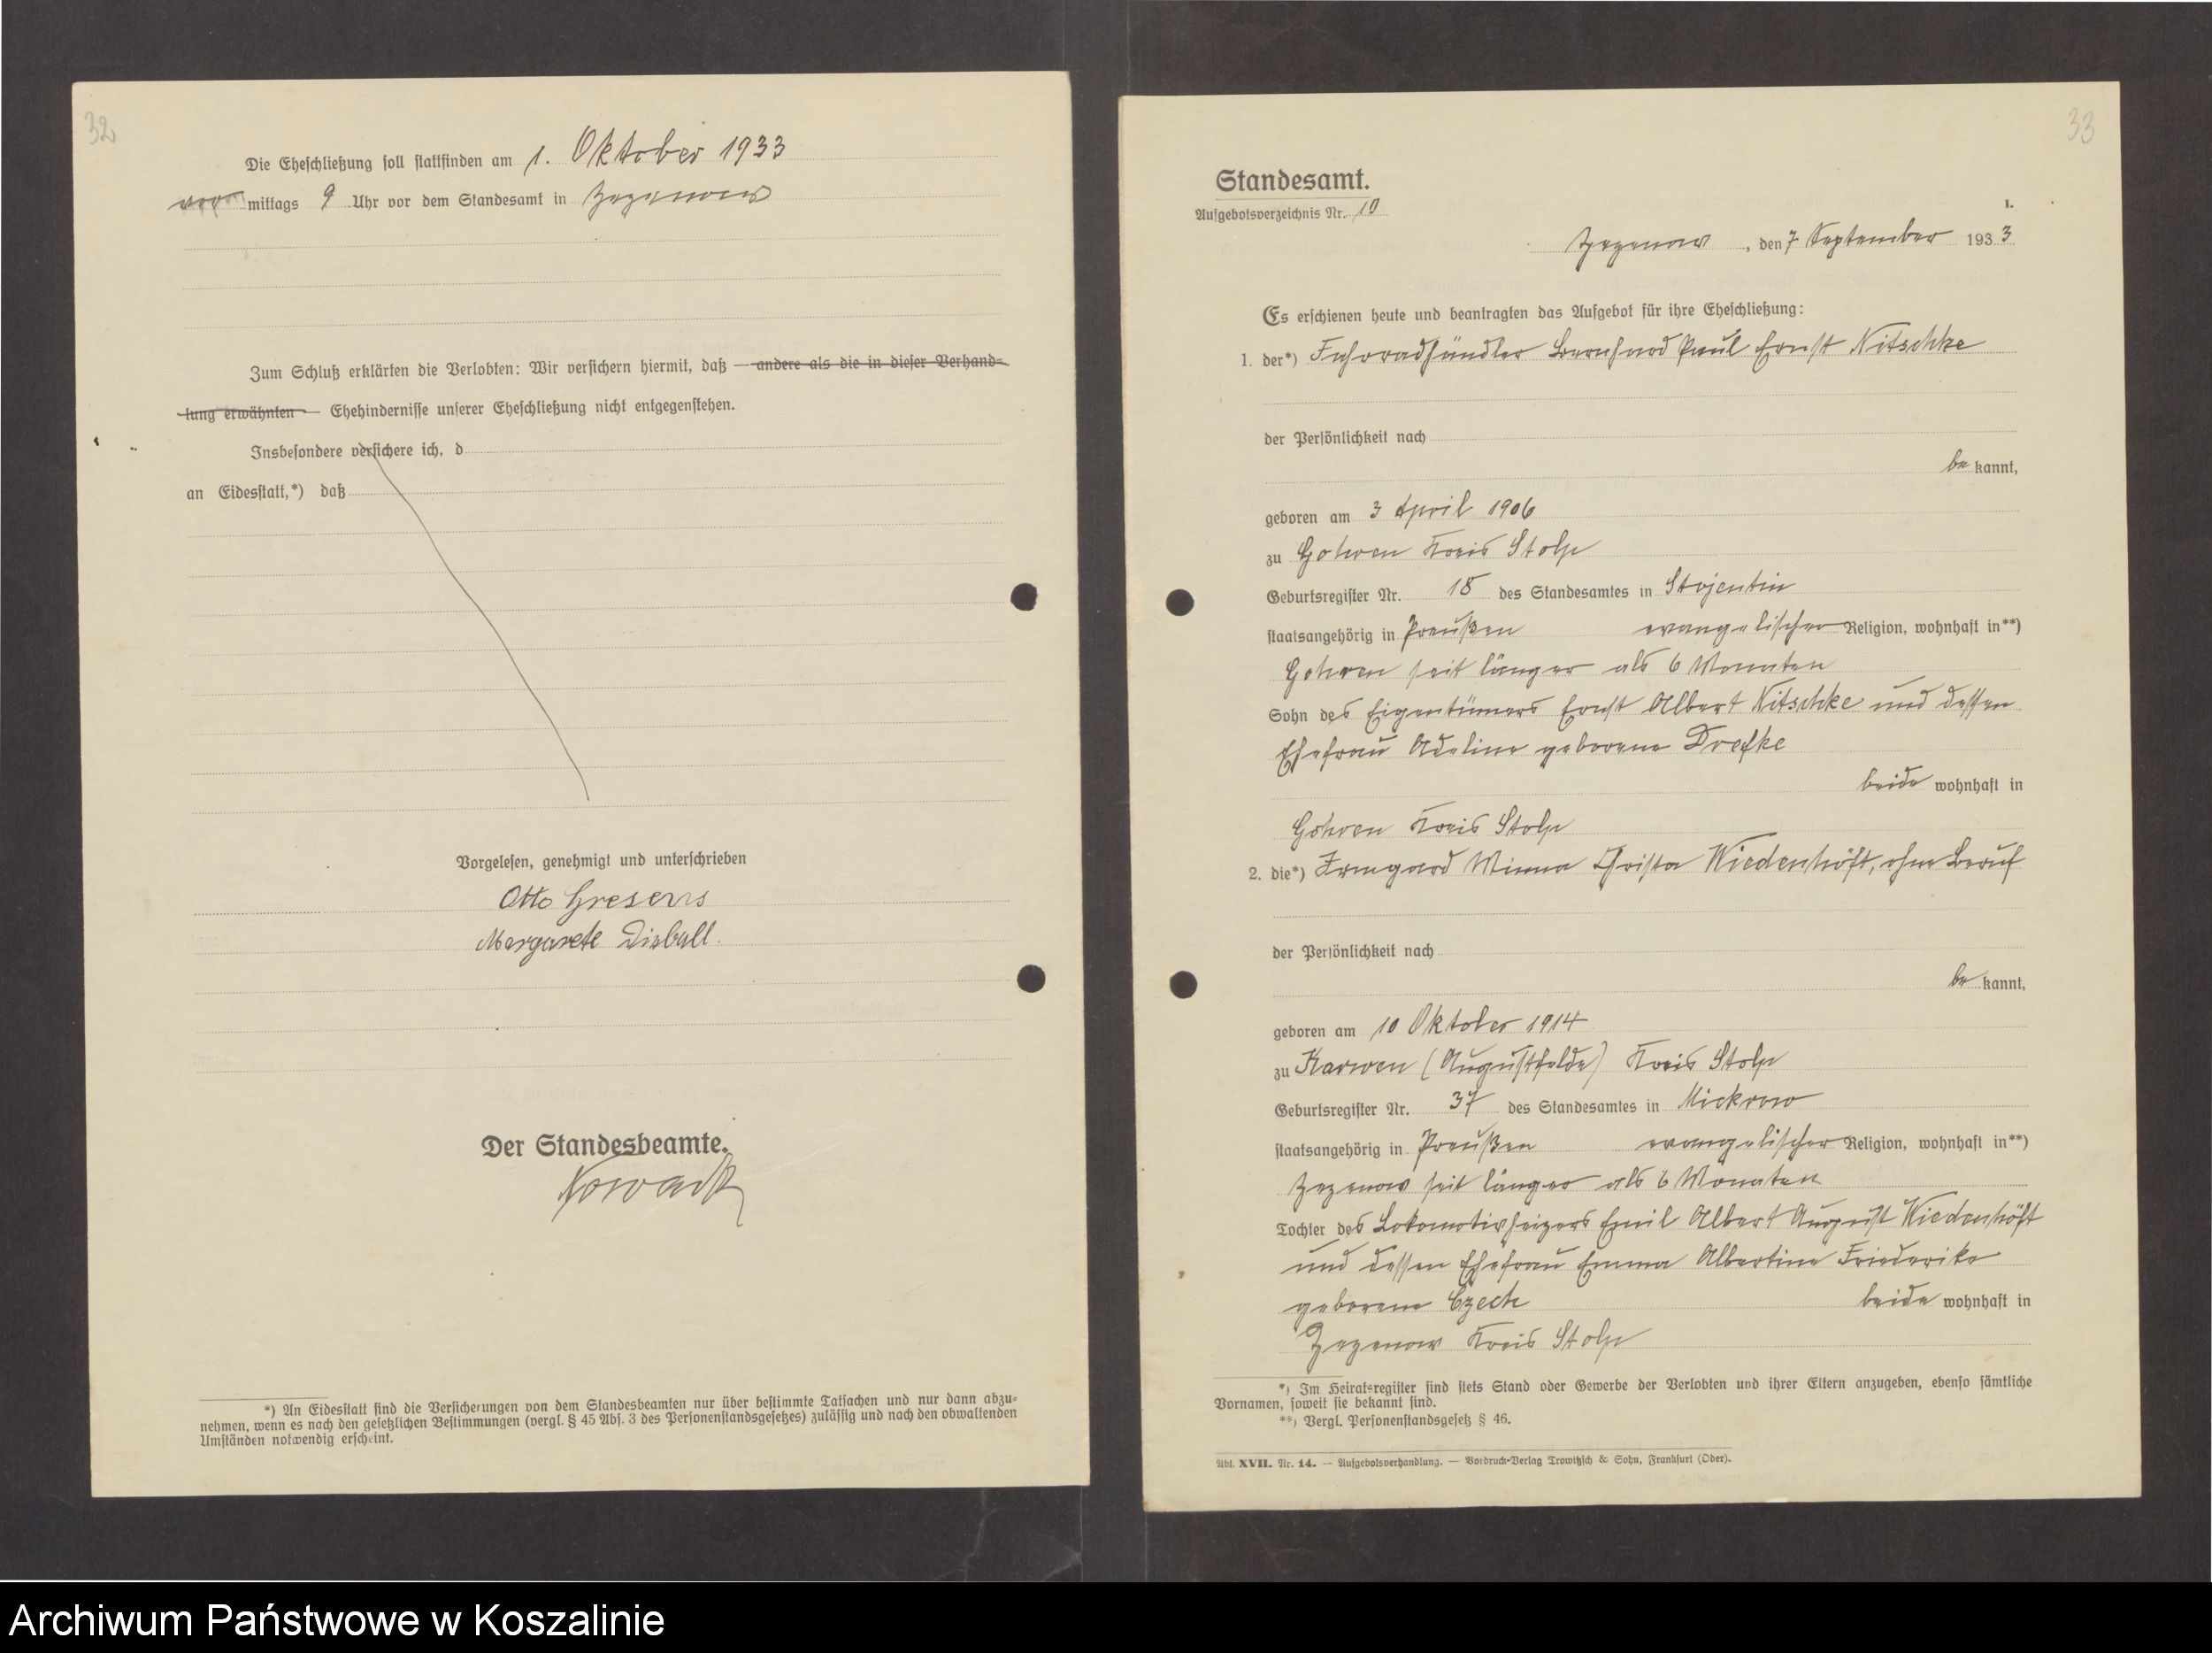 32
Die Eheschließung soll stattfinden am 1. Oktober 1933
vor mittags 9 Uhr vor dem Standesamt in Zezenow
Zum Schluß erklärten die Verlobten: Wir versichern hiermit, daß — andere als die in dieser Verhand-
lung erwähnten — Ehehindernisse unserer Eheschließung nicht entgegenstehen.
Insbesondere versichere ich, d
an Eidesstatt,*) daß
Vorgelesen, genehmigt und unterschrieben
Otto Gresens
Margarete Dieball.
Der Standesbeamte.
Nowack
*) An Eidesstatt sind die Versicherungen von dem Standesbeamten nur über bestimmte Tatsachen und nur dann abzu-
nehmen, wenn es nach den gesetzlichen Bestimmungen (vergl. § 45 Abs. 3 des Personenstandsgesetzes) zulässig und nach den obwaltenden
Umständen notwendig erscheint.
33
Standesamt.
Aufgebotsverzeichnis Nr. 10
1.
Zezenow, den 7 September 1933
Es erschienen heute und beantragten das Aufgebot für ihre Eheschließung:
1. der*) Fahrradhändler Bernhard Paul Ernst Nitschke
der Persönlichkeit nach
be kannt,
geboren am 3 April 1906
zu Gohren Kreis Stolp
Geburtsregister Nr. 18 des Standesamtes in Stojentin
staatsangehörig in Preußen evangelischer Religion, wohnhaft in**)
Gohren seit länger als 6 Monaten
Sohn des Eigentümers Ernst Albert Nitschke und dessen
Ehefrau Adeline geborene Drefke
beide wohnhaft in
Gohren Kreis Stolp
2. die*) Irmgard Minna Christa Wiedenhöft, ohne Beruf
der Persönlichkeit nach
be kannt,
geboren am 10 Oktober 1914
zu Karwen (Augustfelde) Kreis Stolp
Geburtsregister Nr. 37 des Standesamtes in Mickrow
staatsangehörig in Preußen evangelischer Religion, wohnhaft in**)
Zezenow seit länger als 6 Monaten
Tochter des Lokomotivheizers Emil Albert August Wiedenhöft
und dessen Ehefrau Emma Albertine Friederike
geborene Czech beide wohnhaft in
Zezenow Kreis Stolp
*) Im Heiratsregister sind stets Stand oder Gewerbe der Verlobten und ihrer Eltern anzugeben, ebenso sämtliche
Vornamen, soweit sie bekannt sind.
**) Vergl. Personenstandsgesetz § 46.
Abt. XVII. Nr. 14. — Aufgebotsverhandlung. — Vordruck-Verlag Trowitzsch & Sohn, Frankfurt (Oder).
Archiwum Państwowe w Koszalinie